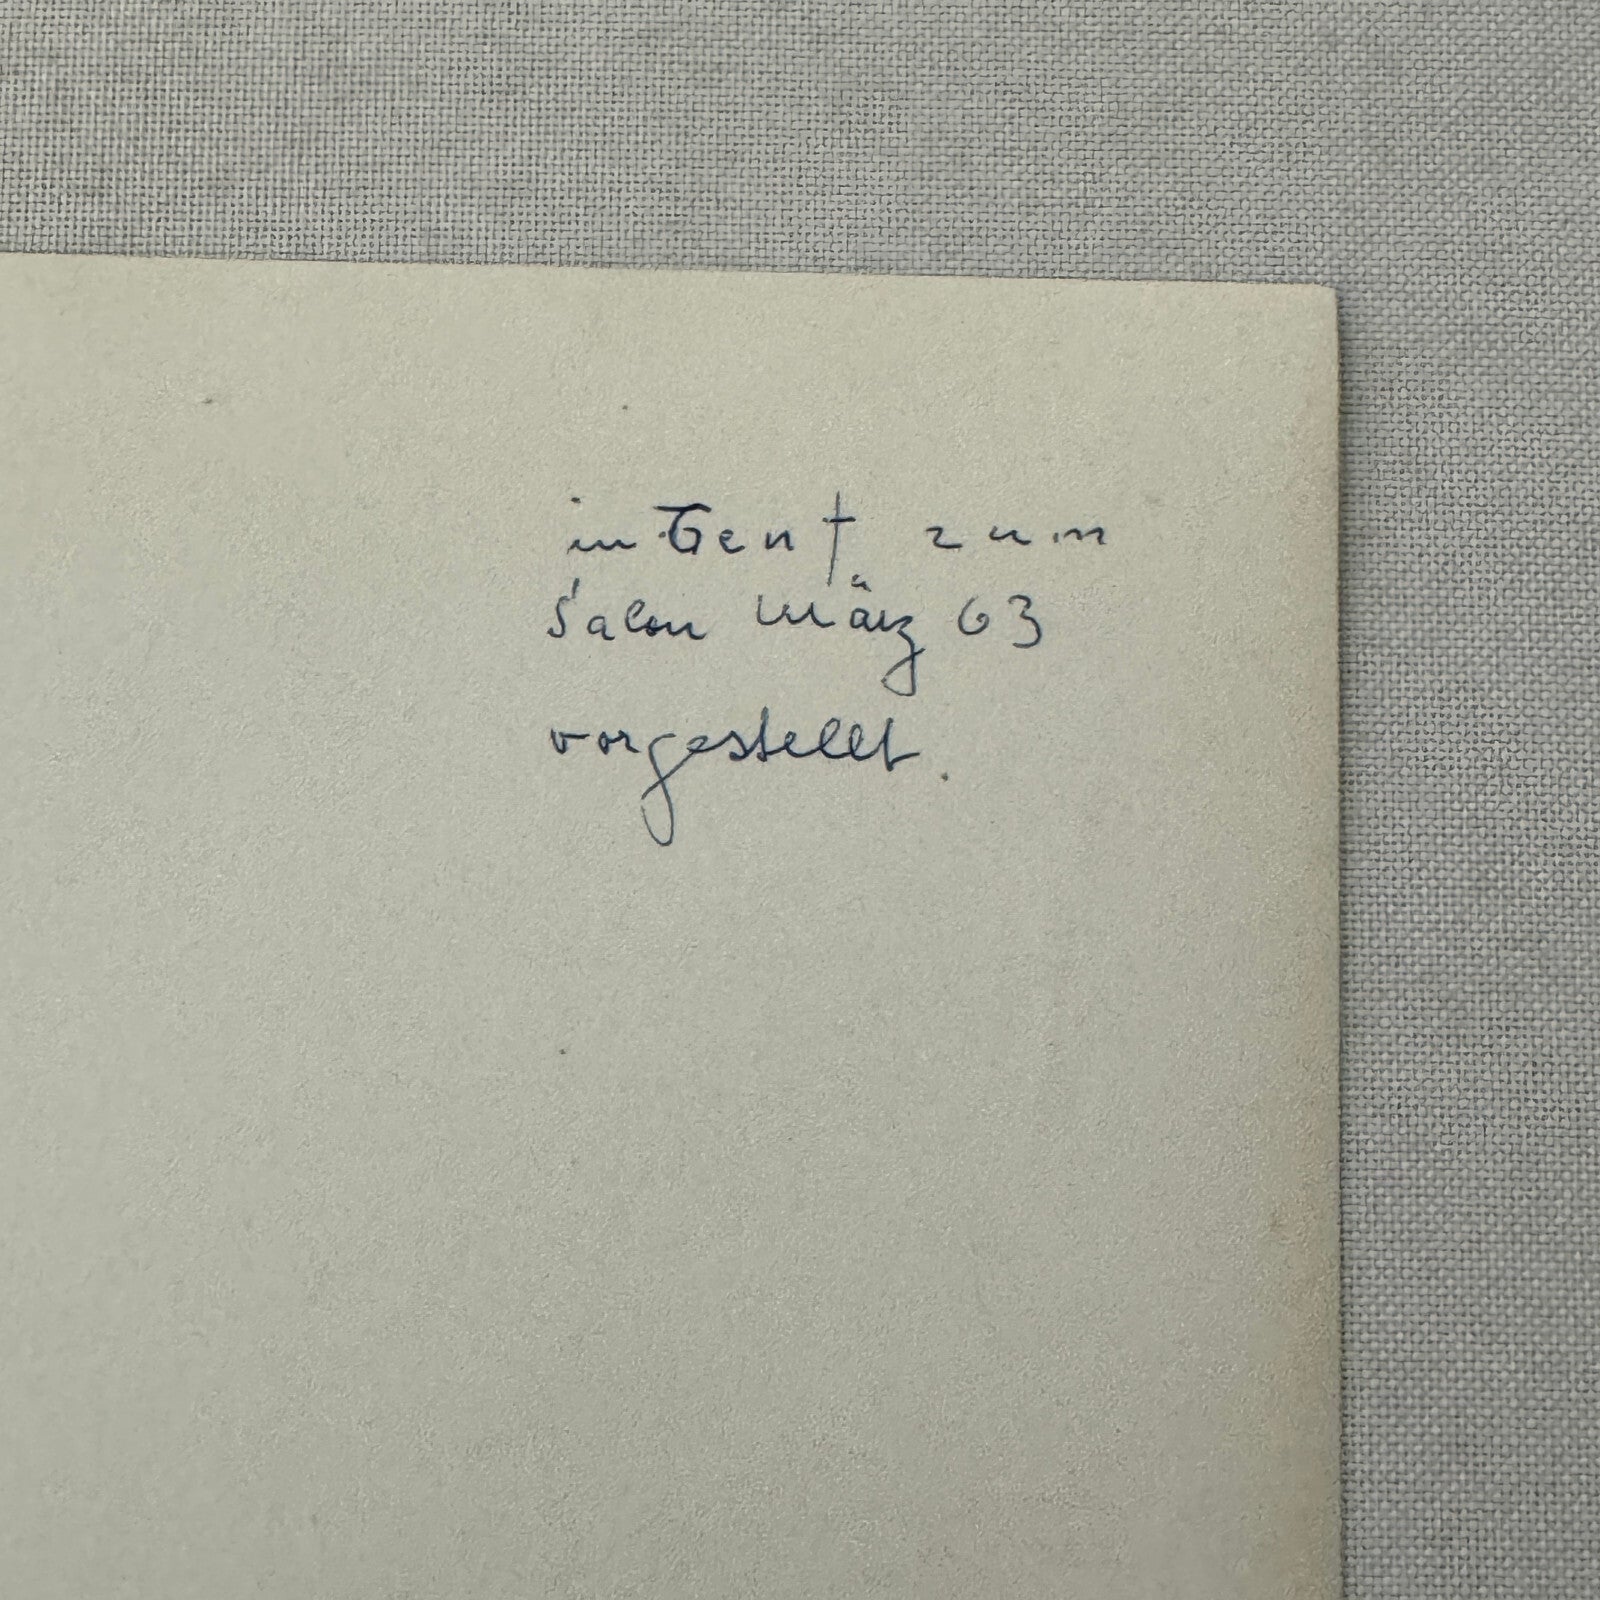 in Gent zum
Salon März 63
vorgestellt.